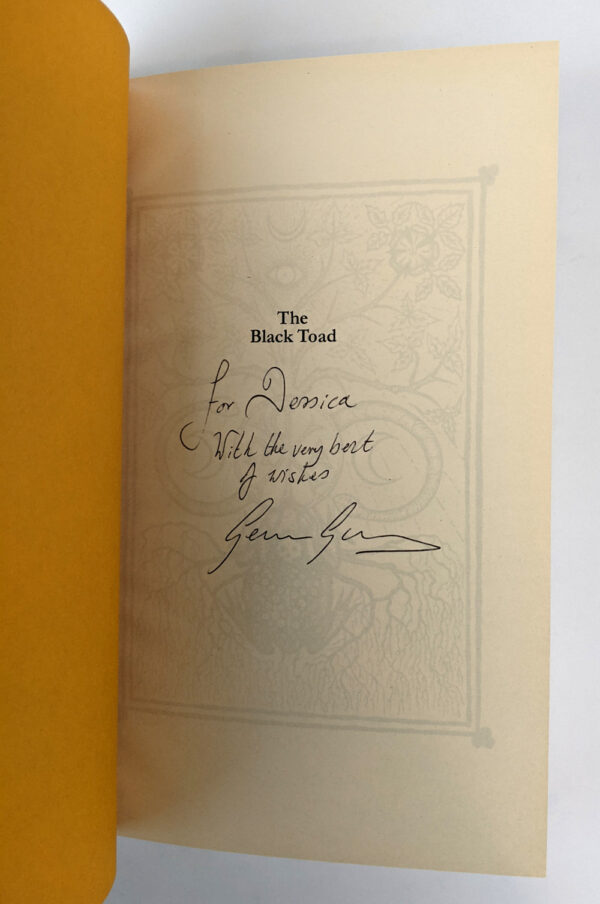 The
Black Toad
for Jessica
With the very best
of wishes
Gemma Gary